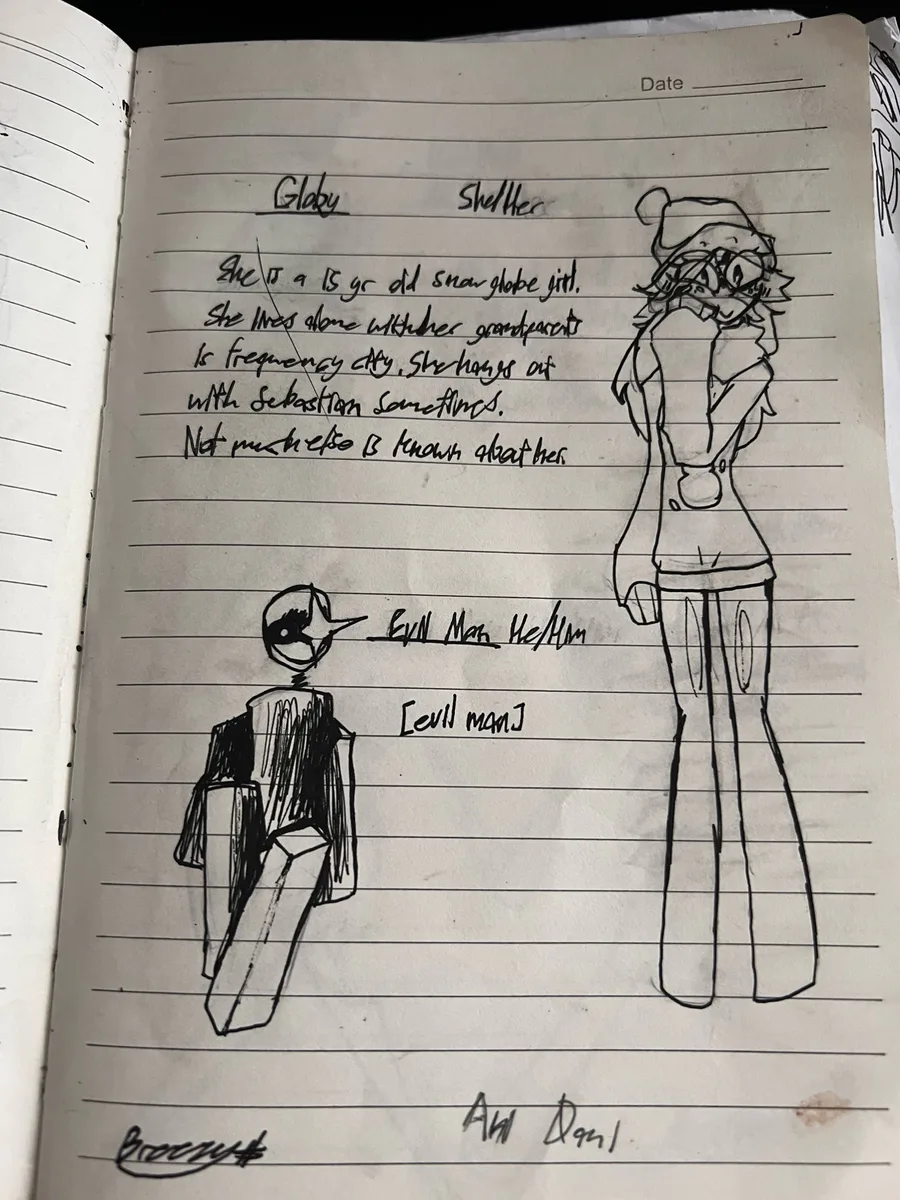 Date
Globy She/Her
She is a 15 yr old snow globe girl.
She lives alone with her grandparents
is frequency city. She hangs out
with Sebastian sometimes.
Not much else is known about her.
Evil Man He/Him
[evil man]
Breezy#